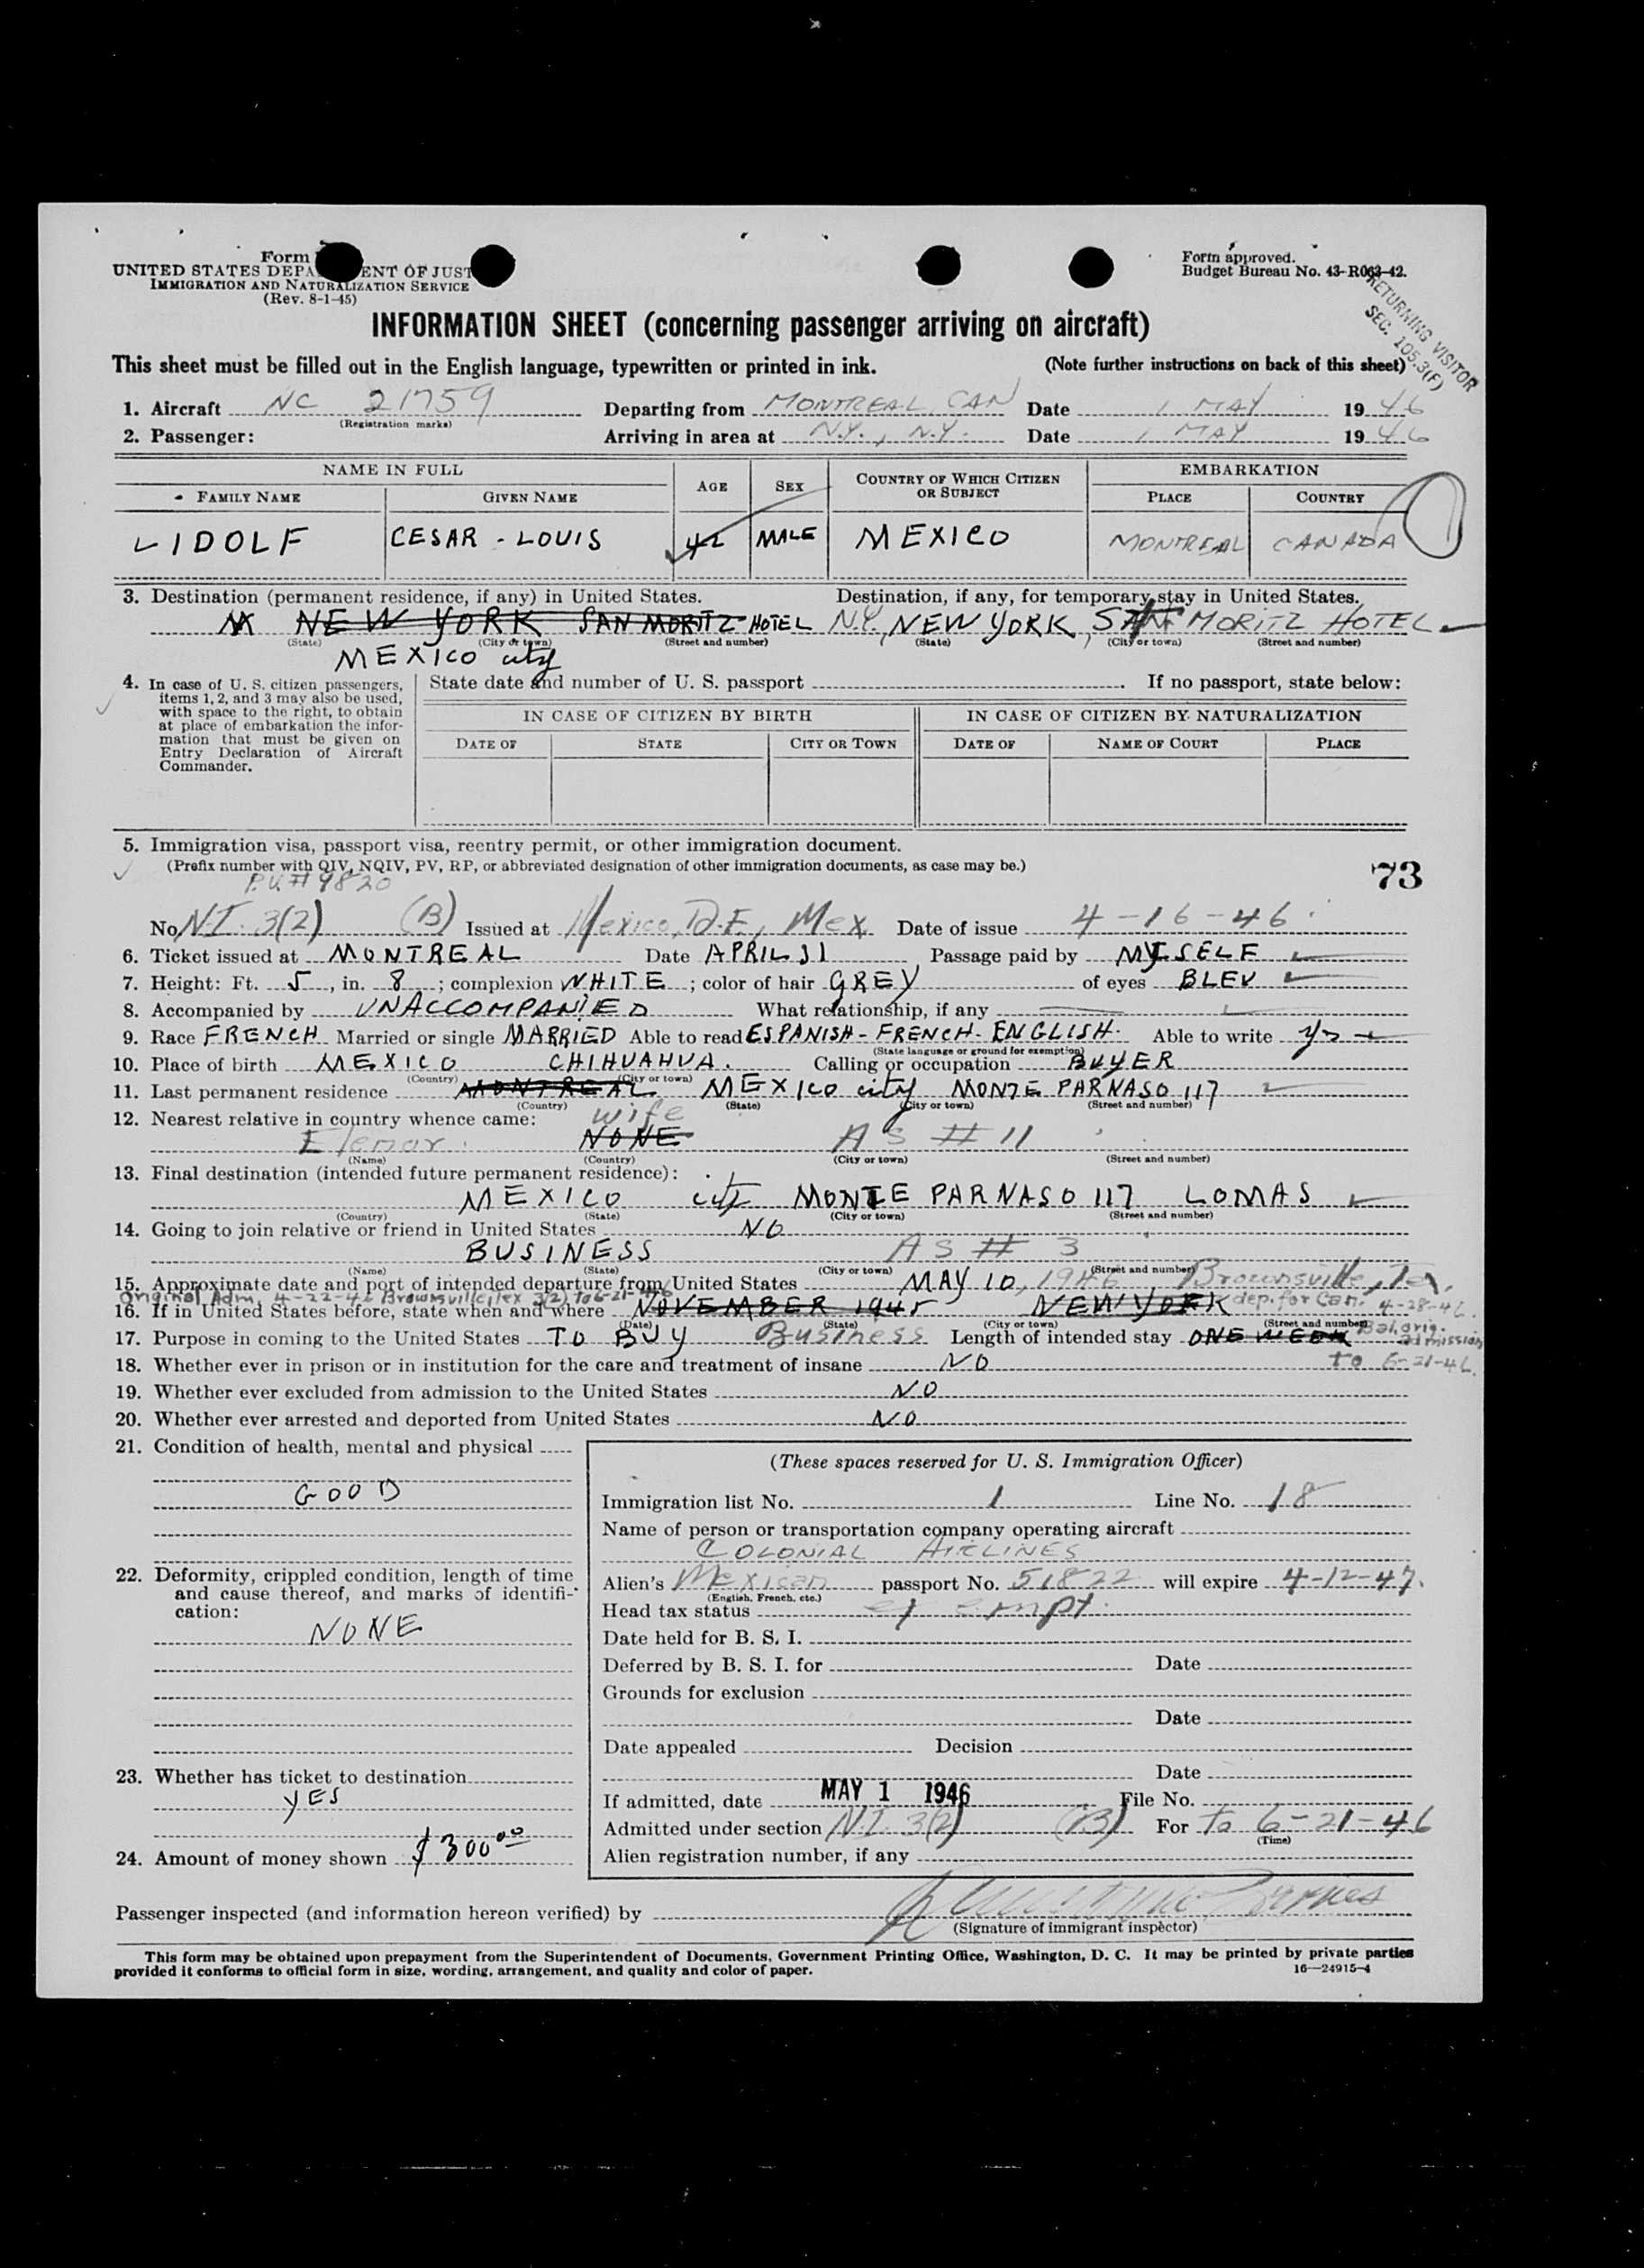 Form
UNITED STATES DEPA ENT OF JUST
IMMIGRATION AND NATURALIZATION SERVICE
(Rev. 8-1-45)
Form approved.
Budget Bureau No. 43-R063-42.
RETURNING VISITOR
SEC. 105.3(F)
INFORMATION SHEET (concerning passenger arriving on aircraft)
This sheet must be filled out in the English language, typewritten or printed in ink. (Note further instructions on back of this sheet)
1. Aircraft NC 21759 Departing from MONTREAL, CAN Date 1 MAY 19 46
(Registration marks)
2. Passenger: Arriving in area at N.Y., N.Y. Date 1 MAY 19 46
NAME IN FULL AGE SEX COUNTRY OF WHICH CITIZEN OR SUBJECT EMBARKATION
FAMILY NAME GIVEN NAME PLACE COUNTRY
LIDOLF CESAR - LOUIS 42 MALE MEXICO MONTREAL CANADA
3. Destination (permanent residence, if any) in United States. Destination, if any, for temporary stay in United States.
NEW YORK SAN MORITZ HOTEL N.Y. NEW YORK, SAN MORITZ HOTEL
(State) (City or town) (Street and number) (State) (City or town) (Street and number)
MEXICO city
4. In case of U. S. citizen passengers, items 1, 2, and 3 may also be used, with space to the right, to obtain at place of embarkation the information that must be given on Entry Declaration of Aircraft Commander.
State date and number of U. S. passport . If no passport, state below:
IN CASE OF CITIZEN BY BIRTH IN CASE OF CITIZEN BY NATURALIZATION
DATE OF STATE CITY OR TOWN DATE OF NAME OF COURT PLACE
5. Immigration visa, passport visa, reentry permit, or other immigration document.
(Prefix number with QIV, NQIV, PV, RP, or abbreviated designation of other immigration documents, as case may be.)
73
P.V. # 9820
No. N.I. 3(2) (B) Issued at Mexico, D.F., Mex. Date of issue 4-16-46
6. Ticket issued at MONTREAL Date APRIL 31 Passage paid by MYSELF
7. Height: Ft. 5, in. 8; complexion WHITE; color of hair GREY of eyes BLEU
8. Accompanied by UNACCOMPANIED What relationship, if any
9. Race FRENCH Married or single MARRIED Able to read ESPANISH - FRENCH - ENGLISH Able to write yes
(State language or ground for exemption)
10. Place of birth MEXICO CHIHUAHUA. Calling or occupation BUYER
(Country) (City or town)
11. Last permanent residence MONTREAL MEXICO city MONTE PARNASO 117
(Country) (State) (City or town) (Street and number)
12. Nearest relative in country whence came: wife
Elenor NONE AS # 11
(Name) (Country) (City or town) (Street and number)
13. Final destination (intended future permanent residence):
MEXICO city MONTE PARNASO 117 LOMAS
(Country) (State) (City or town) (Street and number)
14. Going to join relative or friend in United States NO
BUSINESS AS # 3
(Name) (State) (City or town) (Street and number)
15. Approximate date and port of intended departure from United States MAY 10, 1946 Brownsville, Tex.
Original Adm. 4-22-46 Brownsville, Tex 3(2) to 6-21-46
16. If in United States before, state when and where NOVEMBER 1945 NEW YORK dep. for Can. 4-28-46
(Date) (State) (City or town) (Street and number)
17. Purpose in coming to the United States TO BUY Business Length of intended stay ONE WEEK Bal. orig. admission to 6-21-46.
18. Whether ever in prison or in institution for the care and treatment of insane NO
19. Whether ever excluded from admission to the United States NO
20. Whether ever arrested and deported from United States NO
21. Condition of health, mental and physical
GOOD
22. Deformity, crippled condition, length of time and cause thereof, and marks of identification:
NONE
23. Whether has ticket to destination
YES
24. Amount of money shown $300.00
(These spaces reserved for U. S. Immigration Officer)
Immigration list No. 1 Line No. 18
Name of person or transportation company operating aircraft
COLONIAL AIRLINES
Alien's Mexican passport No. 51822 will expire 4-12-47.
(English, French, etc.)
Head tax status exempt.
Date held for B. S. I.
Deferred by B. S. I. for Date
Grounds for exclusion
Date
Date appealed Decision
Date
If admitted, date MAY 1 1946 File No.
Admitted under section N.I. 3(2) (B) For to 6-21-46
(Time)
Alien registration number, if any
Passenger inspected (and information hereon verified) by
(Signature of immigrant inspector)
This form may be obtained upon prepayment from the Superintendent of Documents, Government Printing Office, Washington, D. C. It may be printed by private parties
provided it conforms to official form in size, wording, arrangement, and quality and color of paper. 16—24915-4